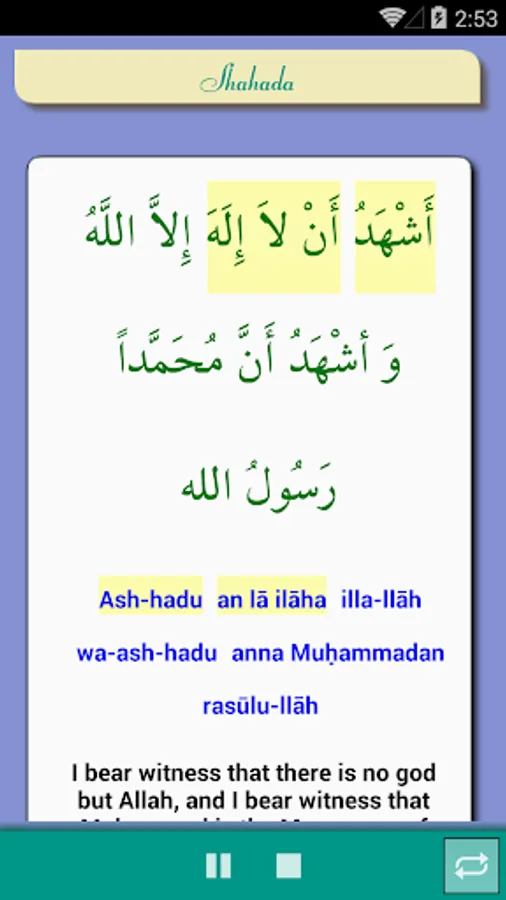 2:53
Shahada
أَشْهَدُ أَنْ لاَ إِلَهَ إِلاَّ اللَّهُ
وَ أشْهَدُ أَنَّ مُحَمَّداً
رَسُولُ الله
Ash-hadu an lā ilāha illa-llāh
wa-ash-hadu anna Muḥammadan
rasūlu-llāh
I bear witness that there is no god
but Allah, and I bear witness that